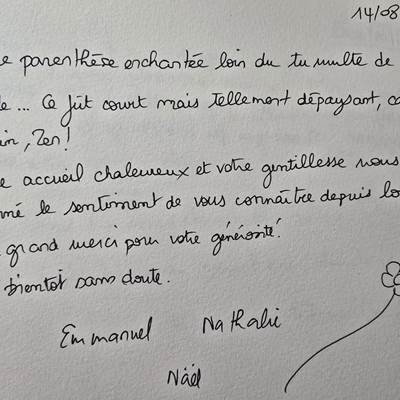 14/08
e parenthèse enchantée loin du tumulte de
e... Ce fût court mais tellement dépaysant, co
in, Zen!
e accueil chaleureux et votre gentillesse nous
né le sentiment de vous connaître depuis lo
grand merci pour votre générosité!
bientôt sans doute.
Emmanuel Nathalie
Näël